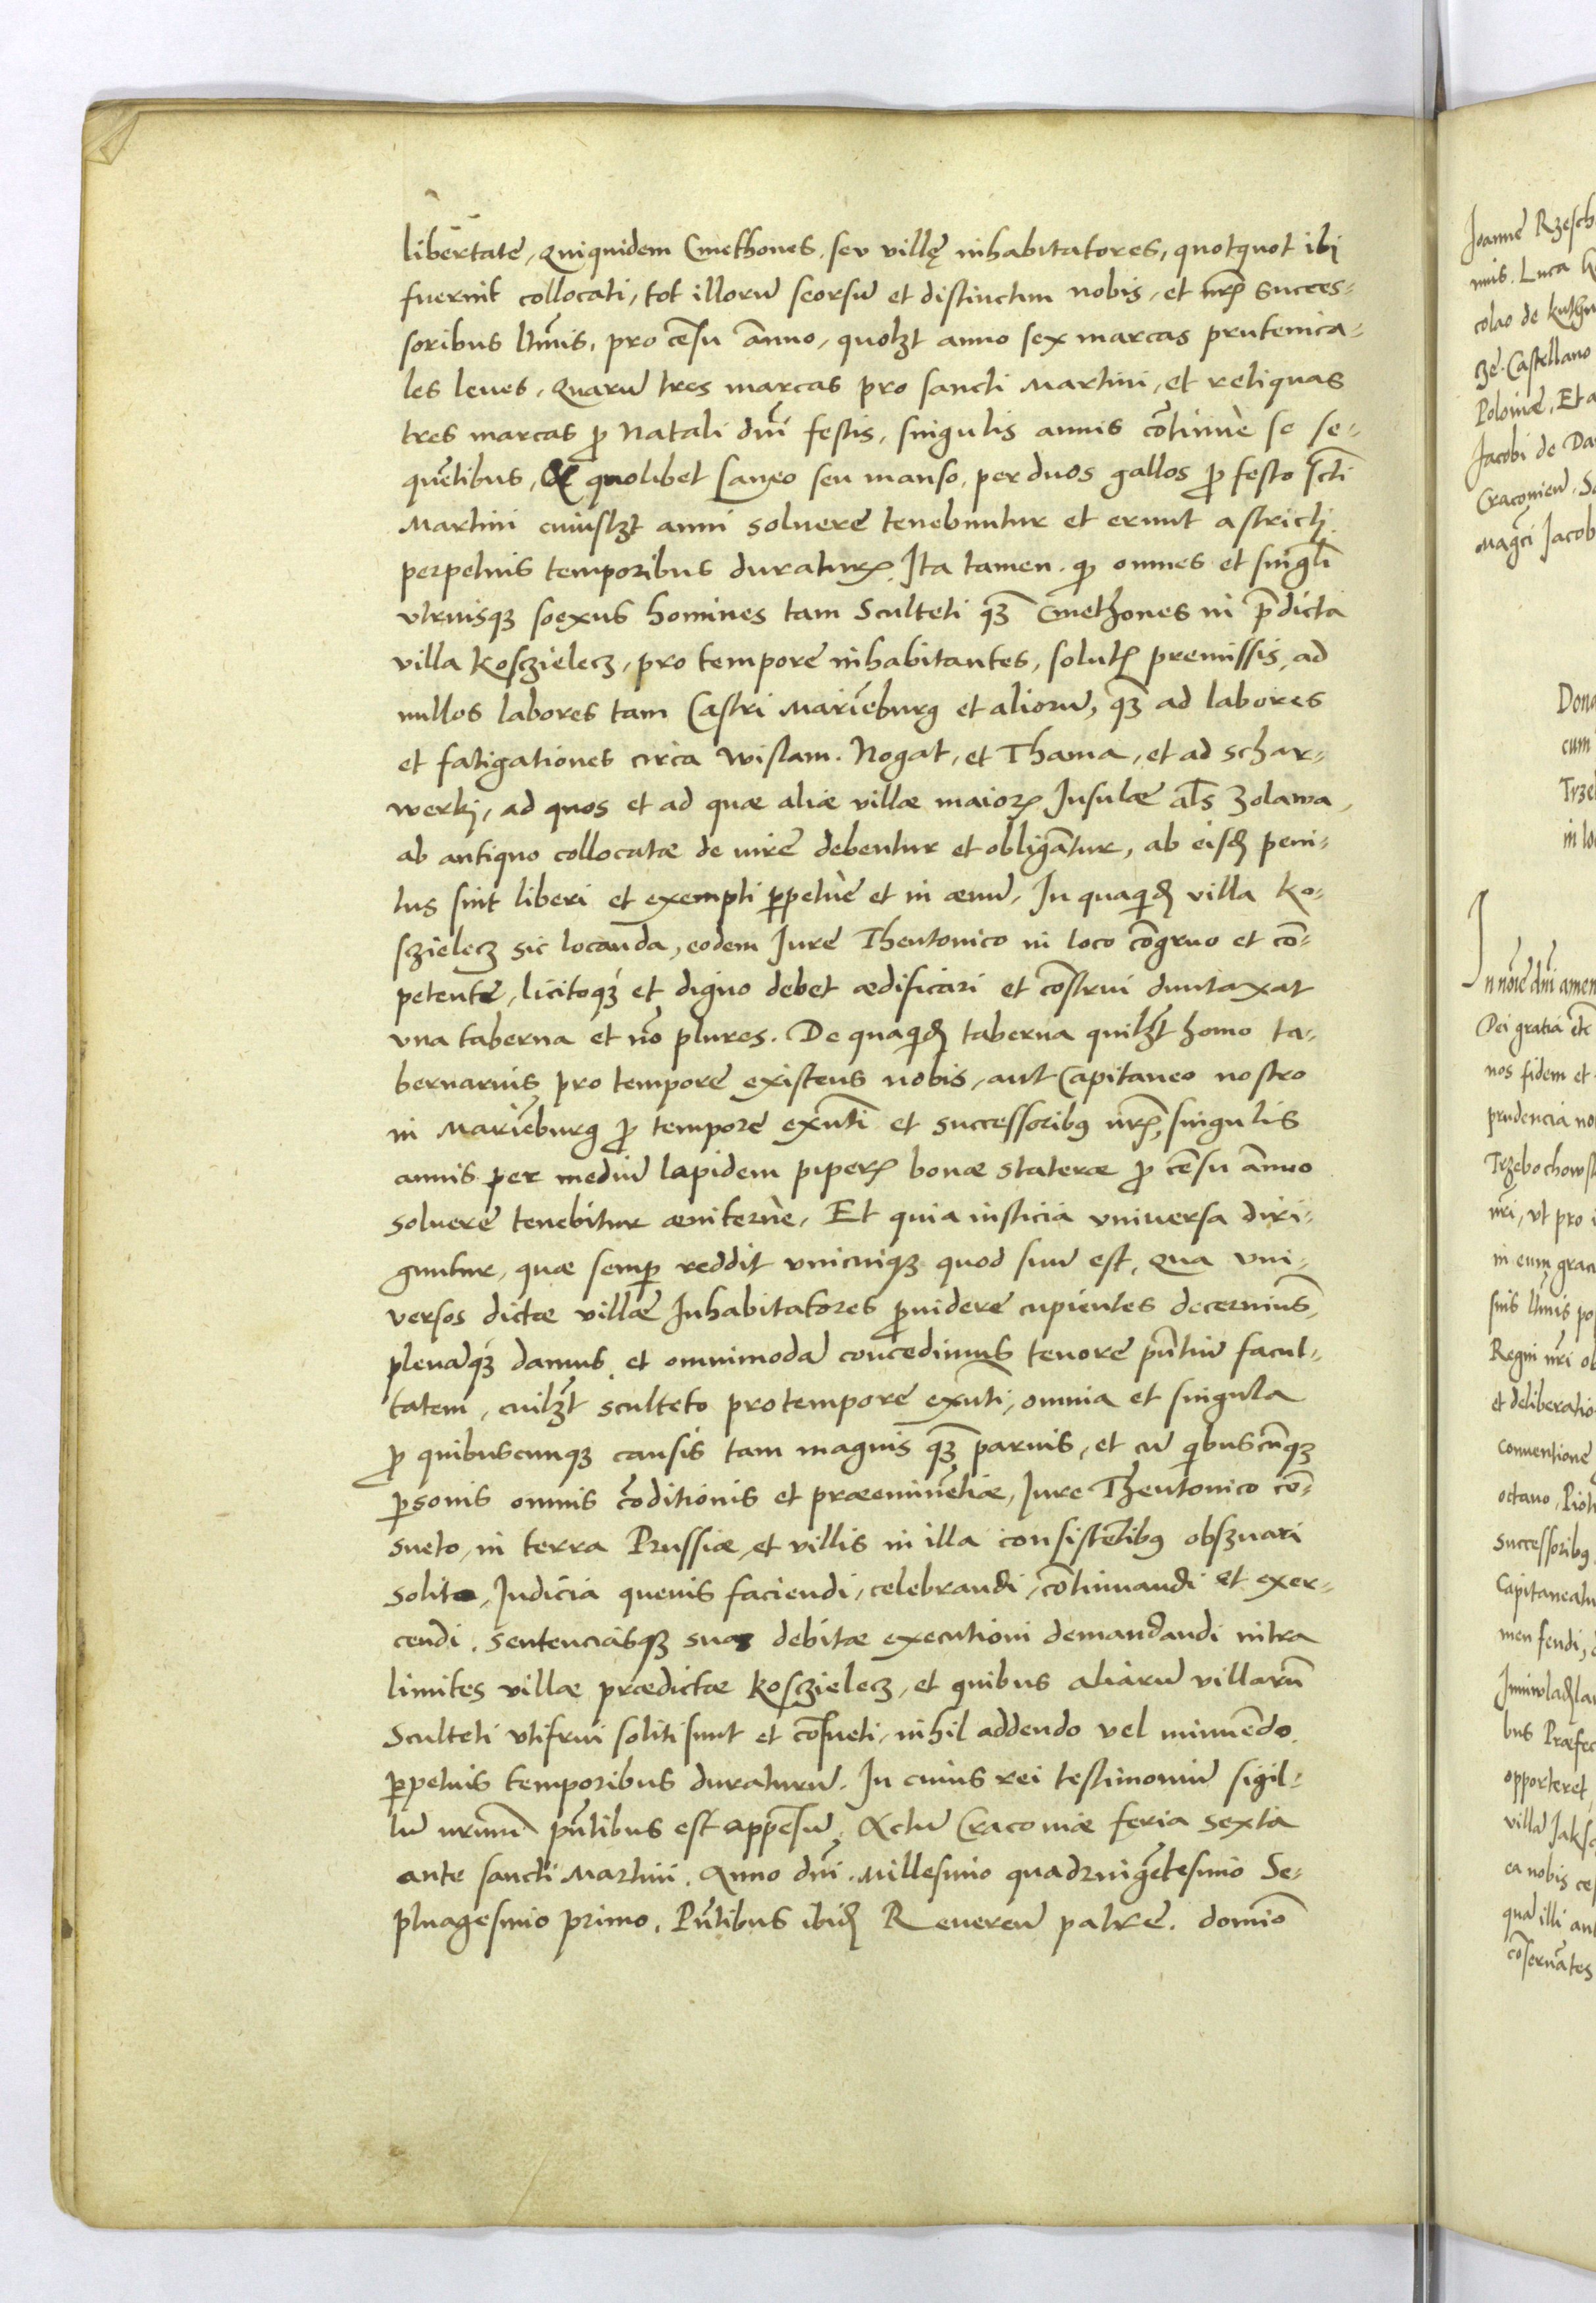 libertate, Quiquidem Cmethones, seu villę inhabitatores, quotquot ibi
fuerint collocati, tot illorū seorsū et distinctim nobis, et nrꝭ succes-
soribus ltīmis, pro cēsu ānuo, quolȝt anno sex marcas prutenica-
les leues, Quarū tres marcas pro sancti Martini, et reliquas
tres marcas ꝓ Natali dnī festis, singulis annis cōtinue se se-
quētibus, & quolibet Laneo seu manso, per duos gallos ꝓ festo sctī
Martini cuiuslȝt anni soluere tenebuntur et erunt astricti
perpetuis temporibus duraturꝭ. Ita tamen qꝫ omnes et singlī
vtriusqꝫ soexus homines tam Sculteti qꝫ Cmethones in pdicta
villa Kosczielecz, pro tempore inhabitantes, solutꝭ premissis, ad
nullos labores tam Castri Mariēburg et aliorū, qꝫ ad labores
et fatigationes circa Wislam. Nogat, et Thama, et ad schar-
werkj, ad quos et ad quæ aliæ villæ maiorꝭ Insulæ als Zolawa,
ab antiquo collocatæ de iure debentur et obligātur, ab eisđ peni-
tus sint liberi et exempti ꝑpetue et in æuū, In quaqđ villa Ko-
sczielecz sic locanda, eodem Iure Theutonico in loco cōgruo et cō-
petente, licitoqꝫ et digno debet ædificari et cōstrui duntaxat
vna taberna et nō plures. De quaqđ taberna quilȝt homo ta-
bernarius pro tempore existens nobis, aut Capitaneo nostro
in Mariēburg ꝓ tempore exnti et successoribꝰ nrꝭ, singulis
annis per mediū lapidem piperꝭ bonæ stateræ ꝓ cēsu ānuo
soluere tenebitur æuiterne, Et quia iusticia vniuersa diri-
guntur, quæ semꝑ reddit vnicuiqꝫ quod suū est, Qua vni-
versos dictæ villæ Inhabitatores ꝓuidere cupientes decernimꝰ,
plenāqꝫ damus, et omnimodā concedimus tenore pntiū facul-
tatem, cuilȝt sculteto pro tempore exnti, omnia et singula
ꝓ quibuscunqꝫ causis tam magnis qꝫ paruis, et cū qibuscūqꝫ
ꝑsonis omnis cōditionis et præeminētiæ, Iure Theutonico cō-
sueto, in terra Prussiæ, et villis in illa consistētibꝰ obsȝuari
solito, Iudicia queuis faciendi, celebrandi, cōtinuandi et exer-
cendi, Sentenciasqꝫ suas debitæ executioni demandandi intra
limites villæ prædictæ Kosczielecz, et quibus aliarū villarū
Sculteti vtifrui soliti sunt et cōsueti, nihil addendo vel minuēdo,
ꝑpetuis temporibus duraturū. In cuius rei testimoniū sigil-
lū nrūm pntibus est appēsū. Actū Cracouiæ feria sexta
ante sancti Martini. Anno dnī. Millesimo quadringētesimo Se-
ptuagesimo primo, Pntibus ibiđ Reueren patre. domino
Joanne Rzesch
colao de
Castellano
Poloniæ, Et a
Jacobi de
Jacob
Dona
cum
Trze
In noīe dnī amen
Dei gratia etc
nos fidem et
prudencia no
Trzebochowsk
nri, vt pro
in eum grac
suis ltīmis po
Regni nri ob
et deliberatio
conuentione
octauo, Piotr
Successoribꝰ
Capitaneatu
bus Præfec
opporteret
villa Jaks
ea nobis ce
qua illi ant
cōseruātes